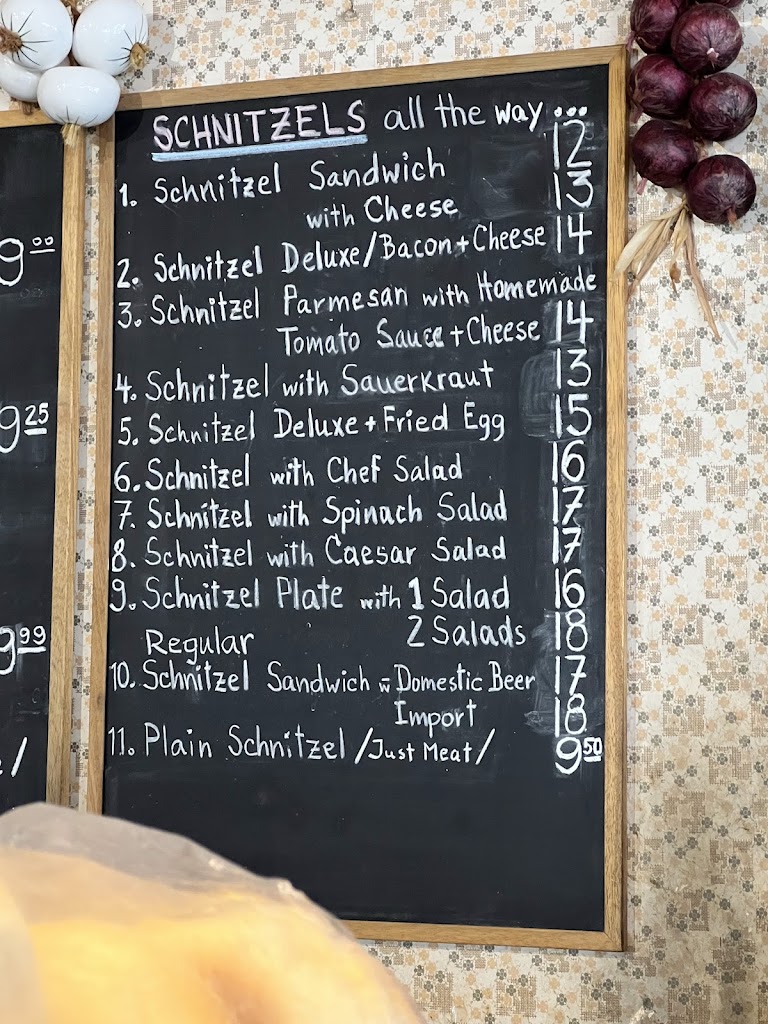 SCHNITZELS all the way...
1. Schnitzel Sandwich 12
with Cheese 13
2. Schnitzel Deluxe/Bacon+Cheese 14
3. Schnitzel Parmesan with Homemade
Tomato Sauce+Cheese 14
4. Schnitzel with Sauerkraut 13
5. Schnitzel Deluxe+Fried Egg 15
6. Schnitzel with Chef Salad 16
7. Schnitzel with Spinach Salad 17
8. Schnitzel with Caesar Salad 17
9. Schnitzel Plate with 1 Salad 16
Regular 2 Salads 18
10. Schnitzel Sandwich w Domestic Beer 17
Import 18
11. Plain Schnitzel /Just Meat/ 9 50
9 00
9 25
9 99